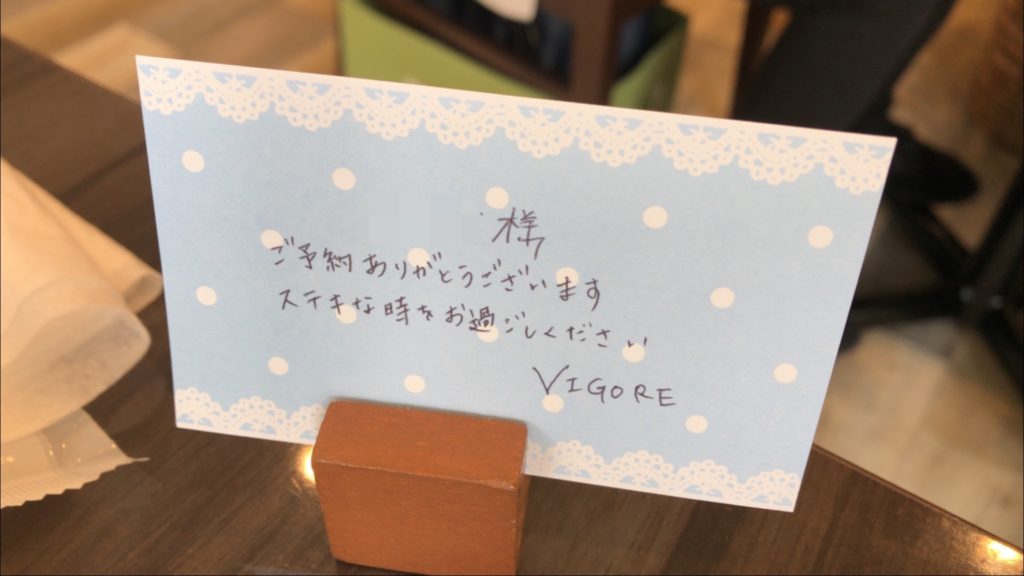 様
ご予約ありがとうございます
ステキな時をお過ごしください
VIGORE